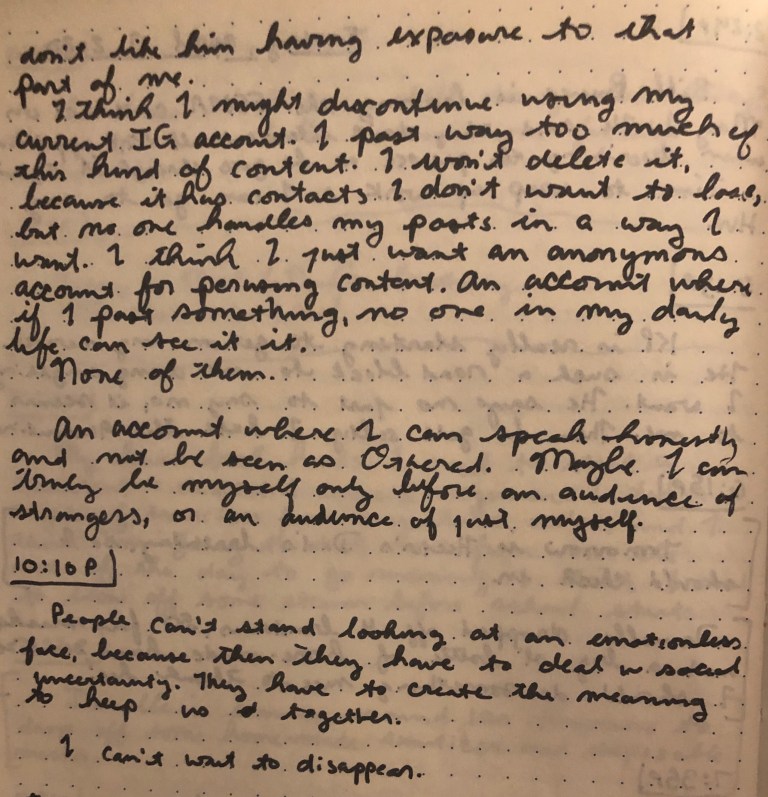 don't like him having exposure to that
part of me.
I think I might discontinue using my
current IG account. I post way too much of
this kind of content. I won't delete it,
because it has contacts I don't want to lose,
but no one handles my posts in a way I
want. I think I just want an anonymous
account for perusing content. An account where
if I post something, no one in my daily
life can see it it.
None of them.
An account where I can speak honestly
and not be seen as Othered. Maybe I can
truly be myself only before an audience of
strangers, or an audience of just myself.
10:10P
People can't stand looking at an emotionless
face, because then they have to deal w social
uncertainty. They have to create the meaning
to keep us together.
I can't wait to disappear.